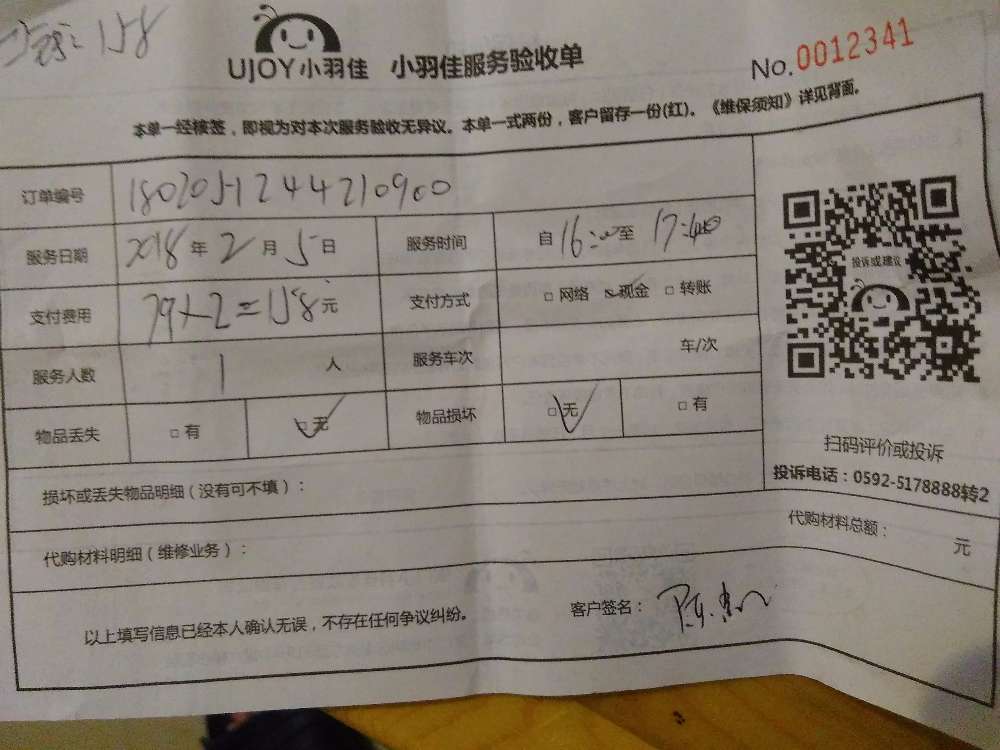 158
UJOY小羽佳 小羽佳服务验收单
No.0012341
本单一经核签，即视为对本次服务验收无异议。本单一式两份，客户留存一份(红)。《维保须知》详见背面。
订单编号 180205124421090​0
服务日期 2018年2月5日 服务时间 自16:00至17:40
投诉或建议
支付费用 79×2=158元 支付方式 □网络 □现金 □转账
服务人数 1人 服务车次 车/次
物品丢失 □有 □无 物品损坏 □无 □有
扫码评价或投诉
投诉电话：0592-5178888转2
损坏或丢失物品明细（没有可不填）：
代购材料总额： 元
代购材料明细（维修业务）：
以上填写信息已经本人确认无误，不存在任何争议纠纷。 客户签名：陈